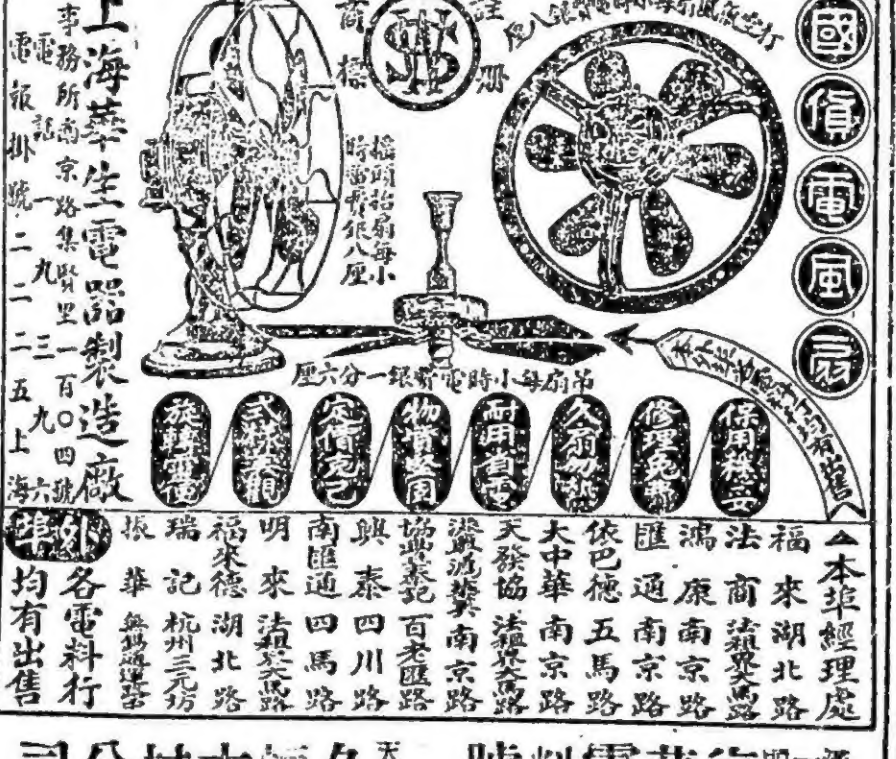 國貨電風扇
註冊
商標
搖頭抬扇每小
時電費銀八厘
吊扇每小時電費銀一分六厘
保用穩妥
修理免費
久扇勿熱
耐用省電
物質堅固
定價克己
式樣美觀
旋轉靈便
上海華生電器製造廠
事務所南京路集賢里一百〇四號
電話一九三九六
電報掛號二二二五上海
本埠經理處
福來湖北路
法商法租界大馬路
鴻康南京路
匯通南京路
依巴德五馬路
大中華南京路
天發協法租界大馬路
南京路
協鼎泰記百老匯路
興泰四川路
南匯通四馬路
明來法租界大馬路
福來德湖北路
瑞記杭州三元坊
振華無錫通運路
外埠各電料行
均有出售